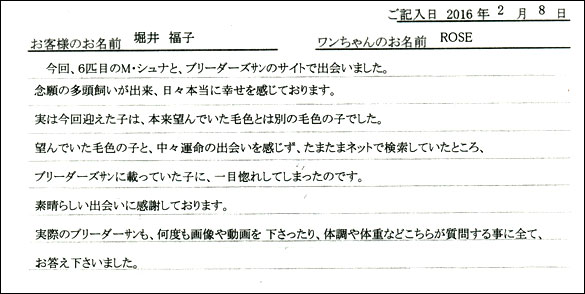 ご記入日 2016 年 2 月 8 日
お客様のお名前 堀井 福子 ワンちゃんのお名前 ROSE
今回、6匹目のM・シュナと、ブリーダーズサンのサイトで出会いました。
念願の多頭飼いが出来、日々本当に幸せを感じております。
実は今回迎えた子は、本来望んでいた毛色とは別の毛色の子でした。
望んでいた毛色の子と、中々運命の出会いを感じず、たまたまネットで検索していたところ、
ブリーダーズサンに載っていた子に、一目惚れしてしまったのです。
素晴らしい出会いに感謝しております。
実際のブリーダーサンも、何度も画像や動画を 下さったり、体調や体重などこちらが質問する事に全て、
お答え下さいました。